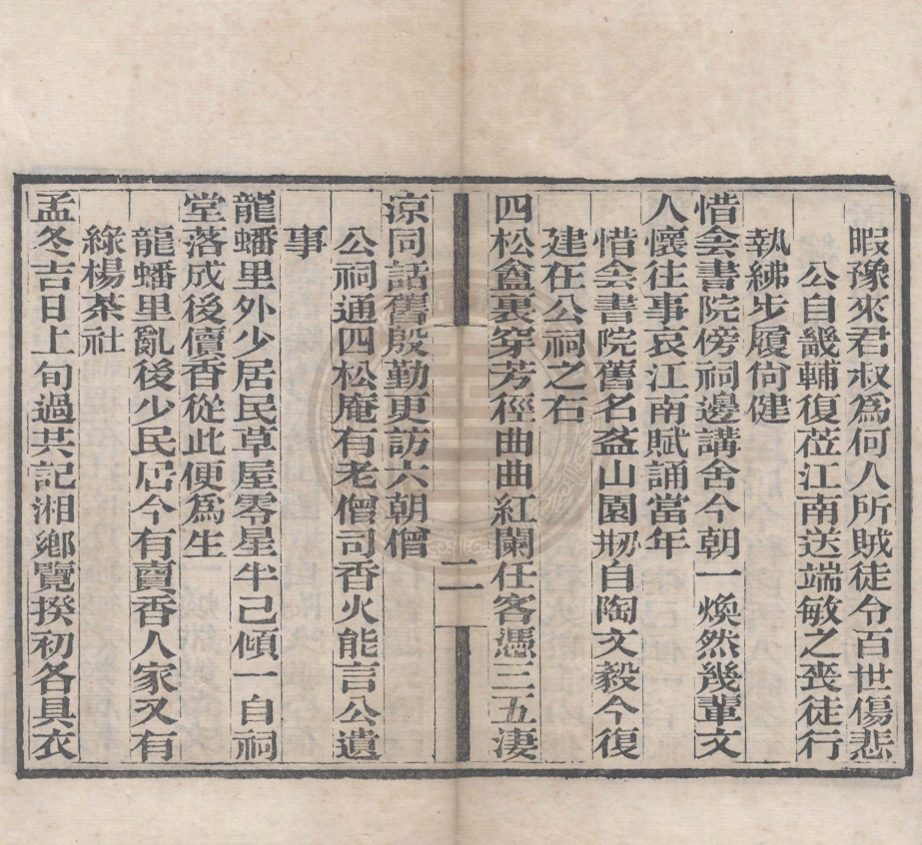 暇豫來君叔爲何人所賊徒令百世傷悲
公自畿輔復莅江南送端敏之喪徒行
執紼步履尙健
惜会書院傍祠邊講舍今朝一煥然幾輩文
人懷往事哀江南賦誦當年
惜会書院舊名盋山園刱自陶文毅今復
建在公祠之右
四松盦裏穿芳徑曲曲紅闌任客憑三五淒
二
涼同話舊殷勤更訪六朝僧
公祠通四松庵有老僧司香火能言公遺
事
龍蟠里外少居民草屋零星半己傾一自祠
堂落成後儥香從此便爲生
龍蟠里亂後少民居今有賣香人家又有
綠楊茶社
孟冬吉日上旬過共記湘鄉覽揆初各具衣